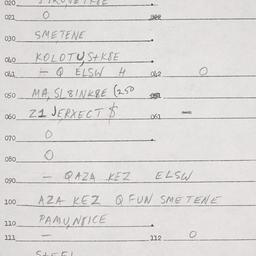 020
021 O 022
030 SMETENE
040 KOLOTUSTKBE
041 - Q ELSW 4 042 O
050 MA, SL BINKBE (250 051
060 21 JERXECT $ 061 -
070 O
080 O
090 - QAZA KEZ ELSW
100 AZA KEZ Q FUN SMETENE
110 PAMU,NBICE
111 - 112 O